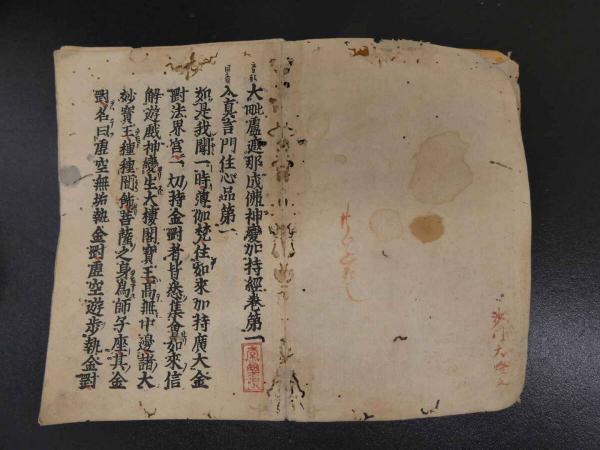 沙門大
大毗盧遮那成佛神變加持經卷第一
入真言門住心品第一
如是我聞一時薄伽梵住如來加持廣大金
剛法界宮一切持金剛者皆悉集會如來信
解遊戲神變生大樓閣寶王高無中邊諸大
妙寶王種種間飾菩薩之身爲師子座其金
剛名曰虛空無垢執金剛虛空遊步執金剛